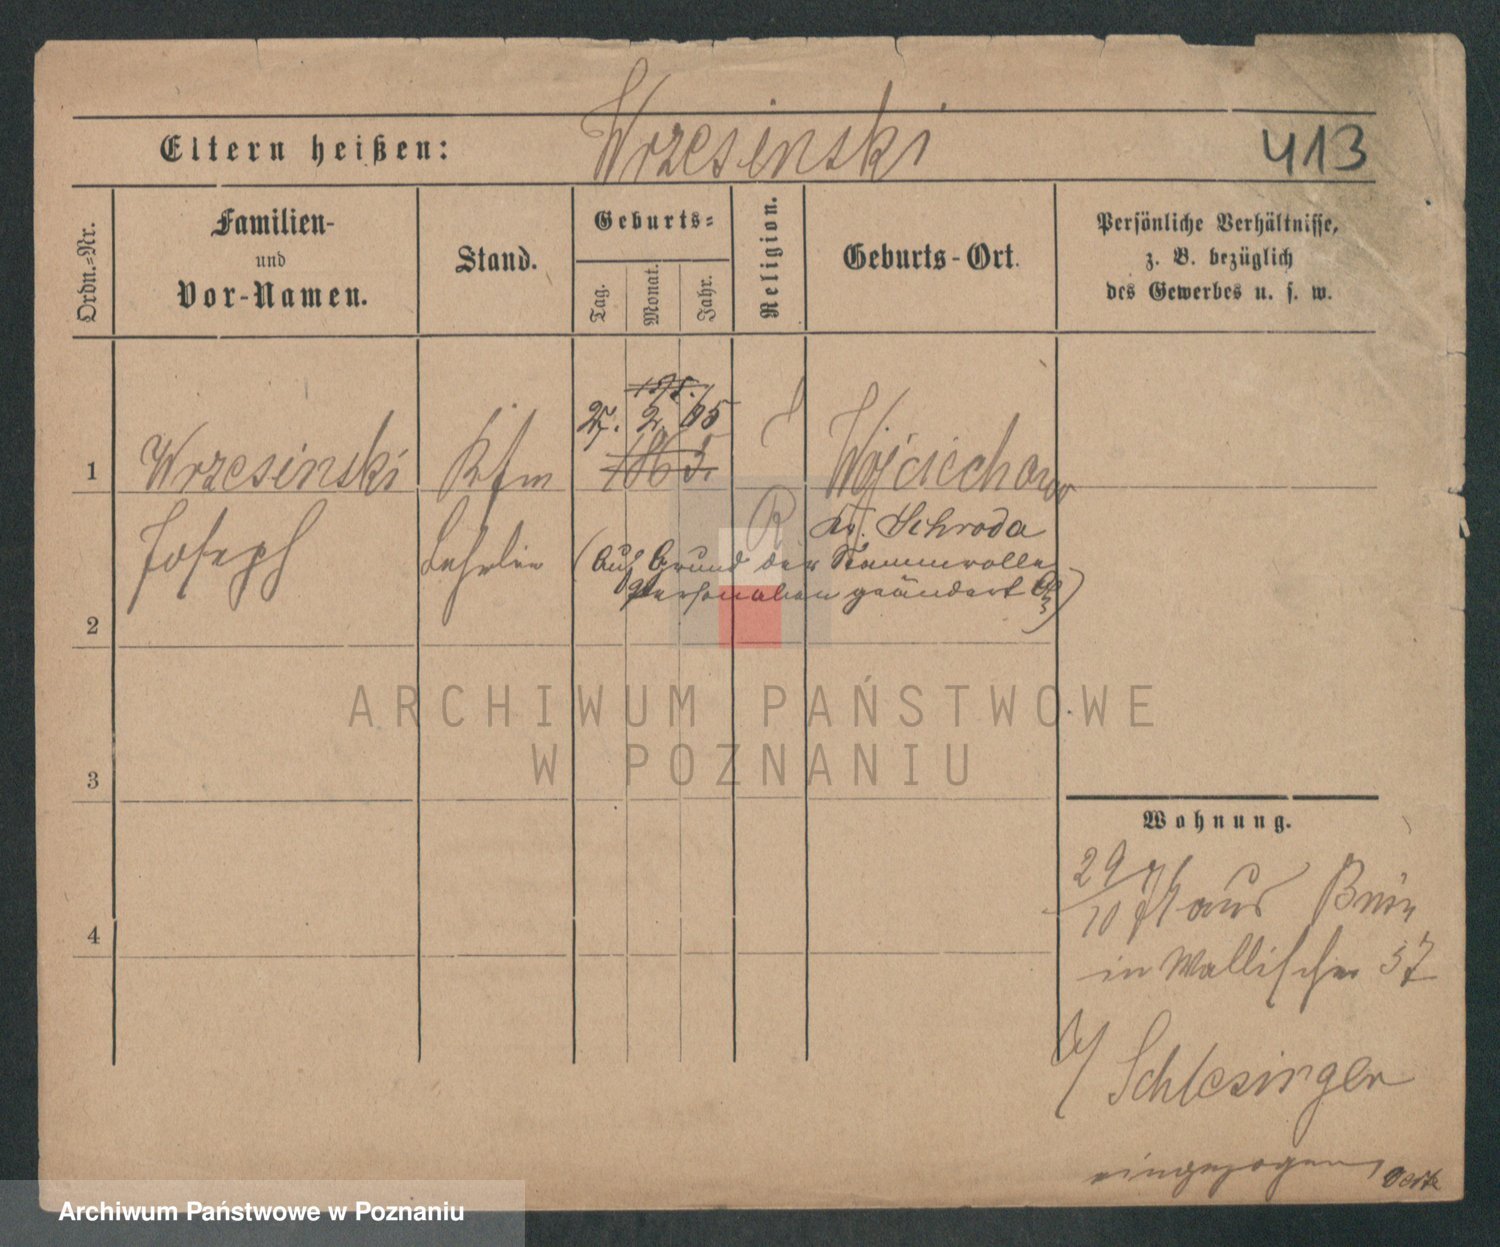 Wrzesinski
Eltern heißen:
413
Ordn.=Nr.
Familien-
und
Vor-Namen.
Stand.
Geburts=
Tag.
Monat.
Jahr.
Religion.
Geburts-Ort.
Persönliche Verhältnisse,
z. B. bezüglich
des Gewerbes u. s. w.
27. 2. 65
1
Wrzesinski
Kfm
1865.
Wojciechowo
Joseph
Lehrlin
R
Kr. Schroda
(Auf Grund der Stammrolle
Personalien geändert
2
ARCHIWUM PAŃSTWOWE
W POZNANIU
3
Wohnung.
29/10 81 aus Bnin
4
in Wallischei 57
b/ Schlesinger
eingezogen
Archiwum Państwowe w Poznaniu